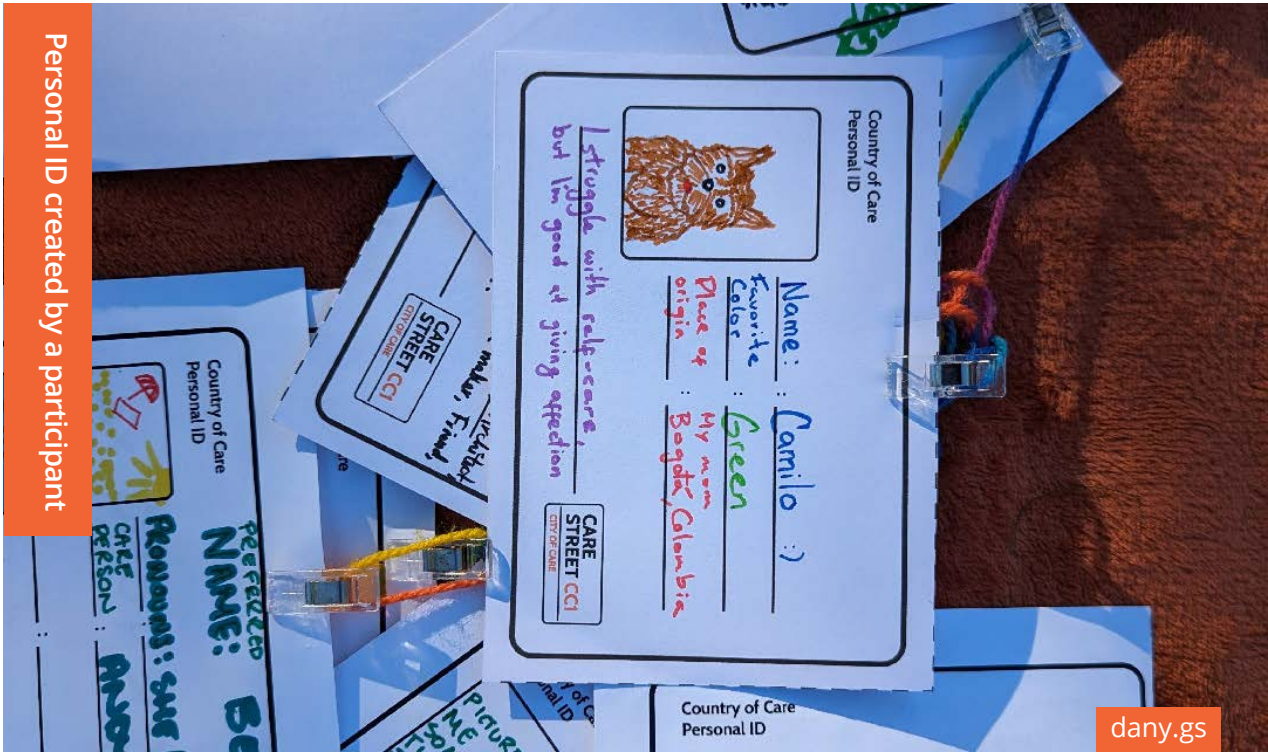 Personal ID created by a participant
Country of Care
Personal ID
Name: : Camilo :)
Favorite
Color : Green
Place of
origin : My mom
Bogotá, Colombia
I struggle with self-care,
but I'm good at giving affection
CARE
STREET CC1
CITY OF CARE
CARE
STREET CC1
CITY OF CARE
maker, Friend,
Country of Care
Personal ID
PREFERRED
NAME:
PRONOUNS: SHE
CARE
PERSON :
PICTURE
ME
Country of Care
Personal ID
dany.gs